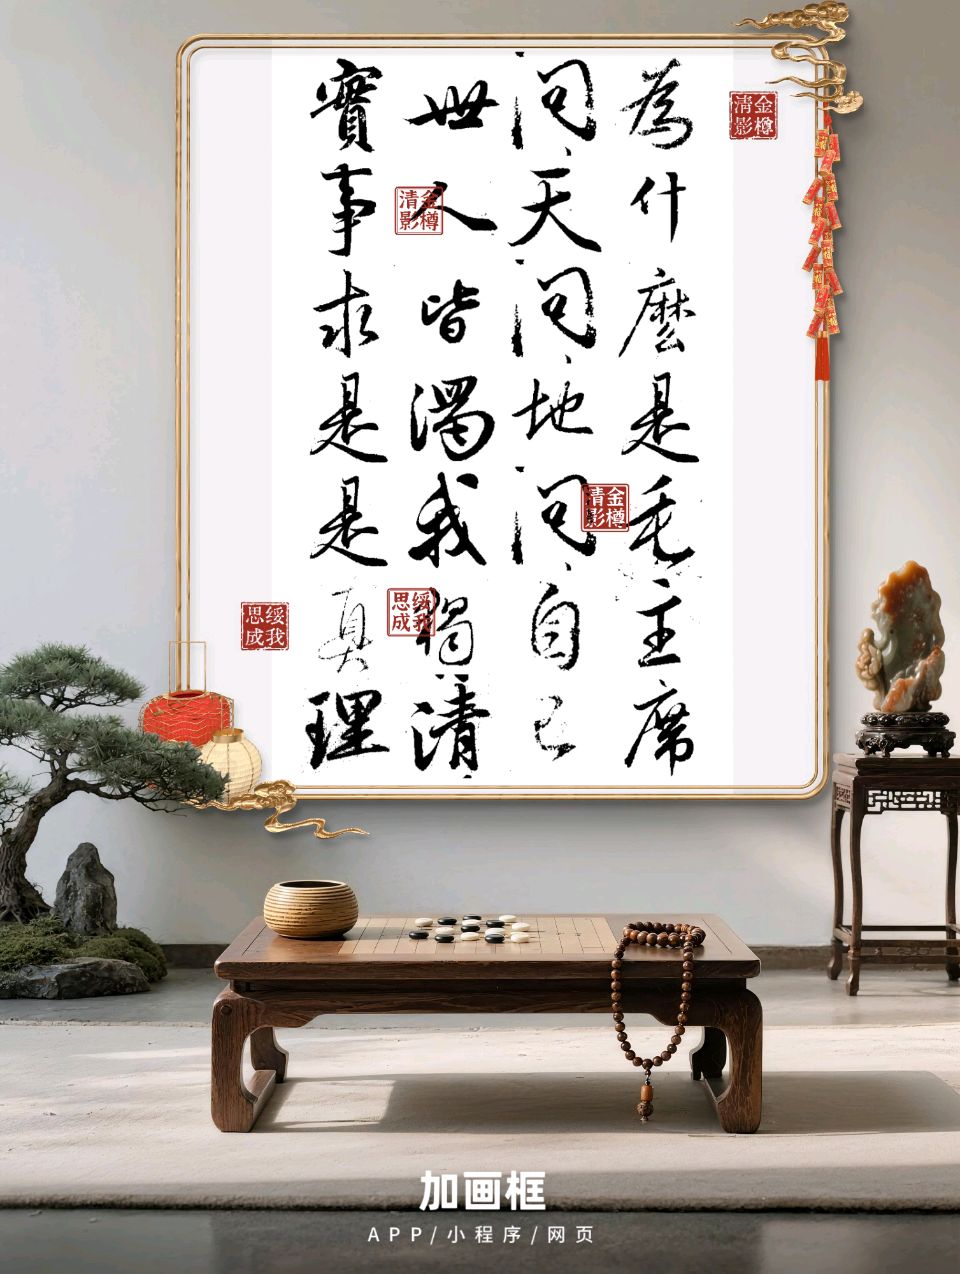 為什麼是毛主席
问天问地问自己
世人皆濁我獨清
實事求是是真理
金樽清影
金樽清影
金樽清影
绥我思成
绥我思成
加画框
APP/小程序/网页